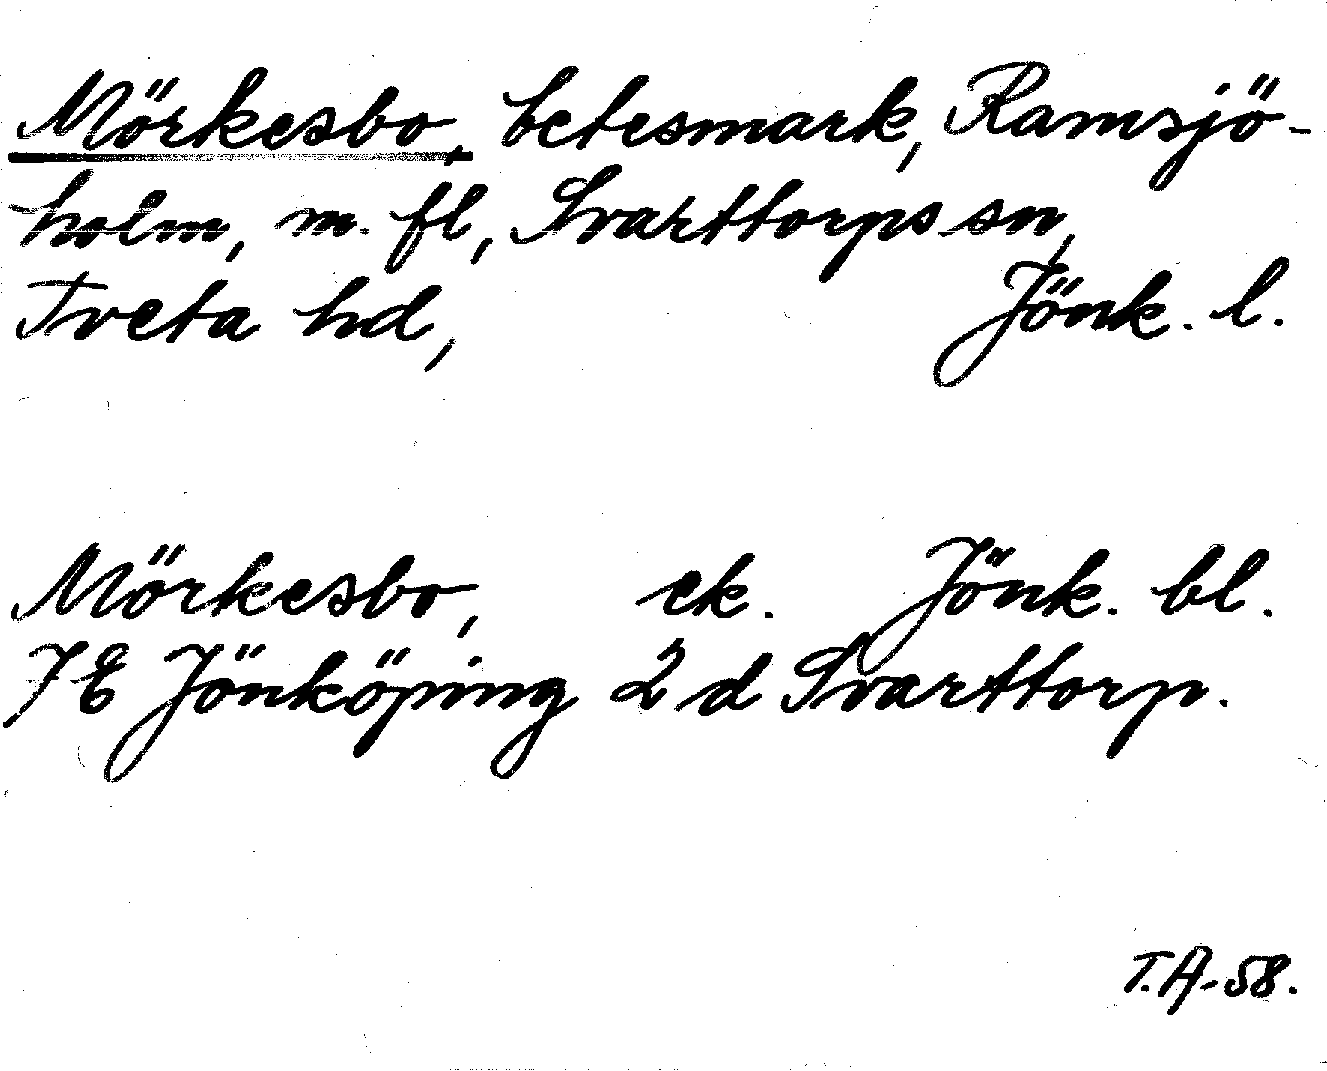 Mörkesbo, betesmark, Ramsjö-
holm, m. fl, Svarttorps sn,
Tveta hd, Jönk. l.
Mörkesbo, ek. Jönk. bl.
7E Jönköping 2 d Svarttorp.
T.A-58.